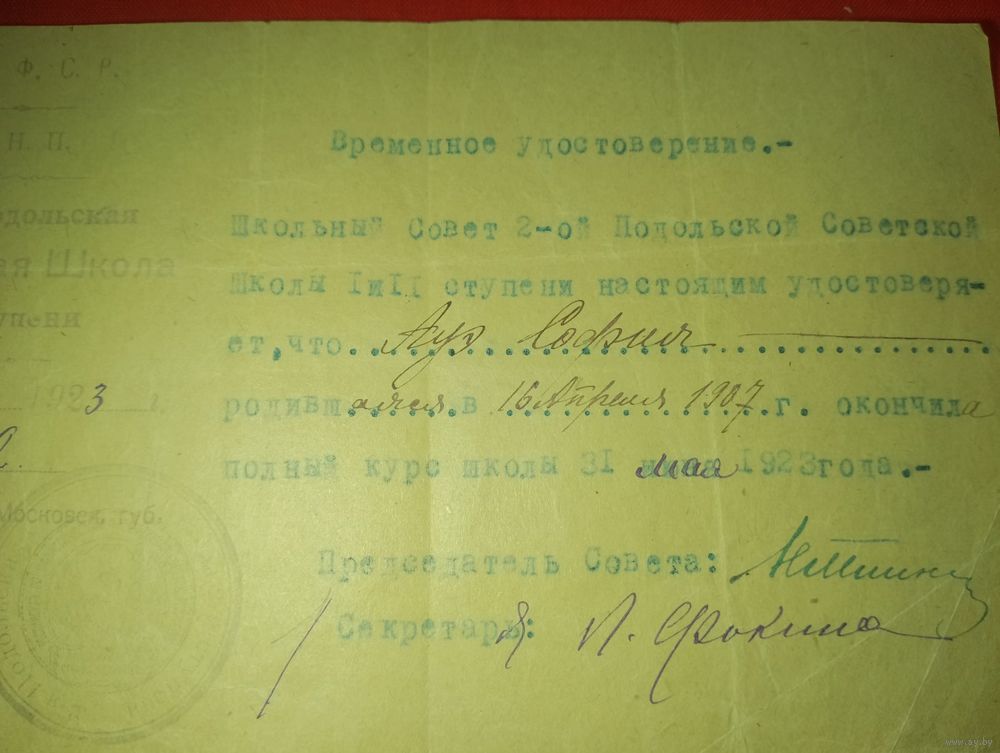 Ф. С. Р.
Н. П.
одольская
ая Школа
упени
1923 г.
Московск. губ.
Временное удостоверение.-
Школьный Совет 2-ой Подольской Советской
Школы I и II ступени настоящим удостоверя-
ет, что Ауэ София
родившаяся в 16 Апреля 1907 г. окончила
полный курс школы 31 мая 1923 года.-
Председатель Совета:
Секретарь: Л. Фокина
www.ay.by